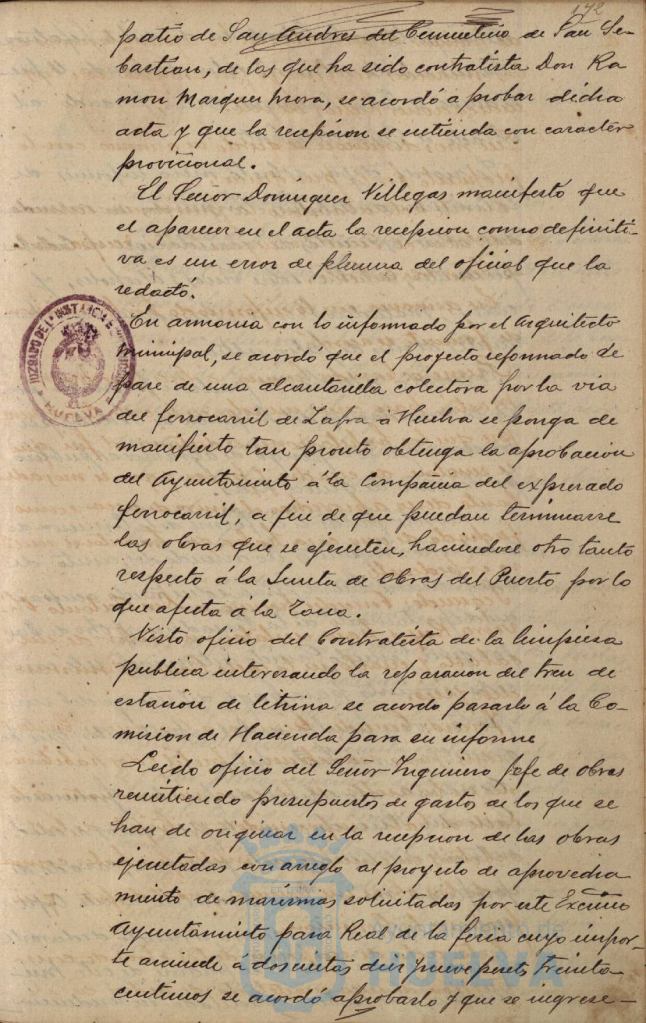 172
patio de San Andres del Cementerio de San Se-
bastian, de las que ha sido contratista Don Ra
mon Marquez Mora, se acordó aprobar dicha
acta y que la recepcion se entienda con caracter
provicional.
El Señor Dominguez Villegas manifestó que
el aparecer en el acta la recepcion como definiti-
va es un error de pluma del oficial que la
redactó.
En armonia con lo informado por el Arquitecto
municipal, se acordó que el proyecto reformado de
pase de una alcantarilla colectora por la via
del ferrocarril de Zafra á Huelva se ponga de
manifiesto tan pronto obtenga la aprobacion
del Ayuntamiento á la Compañia del expresado
ferrocarril, a fin de que puedan terminarse
las obras que se ejecuten, haciendoce otro tanto
respecto á la Junta de Obras del Puerto por lo
que afecta á la Zona.
Visto oficio del Contratista de la limpiesa
publica interesando la reparacion del tren de
estación de letrina se acordó pasarlo á la Co-
mision de Hacienda para su informe
Leido oficio del Señor Ingeniero Jefe de obras
remitiendo presupuestos de gastos de los que se
han de originar en la recepcion de las obras
ejecutadas con arreglo al proyecto de aprovecha
miento de marismas solicitadas por este Excmo
Ayuntamiento para Real de la feria cuyo impor-
te asciende á doscientas diez y nueve pesets treinta
centimos se acordó aprobarlo y que se ingrese-
JUZGADO DE 1ª INSTANCIA
HUELVA
HUELVA